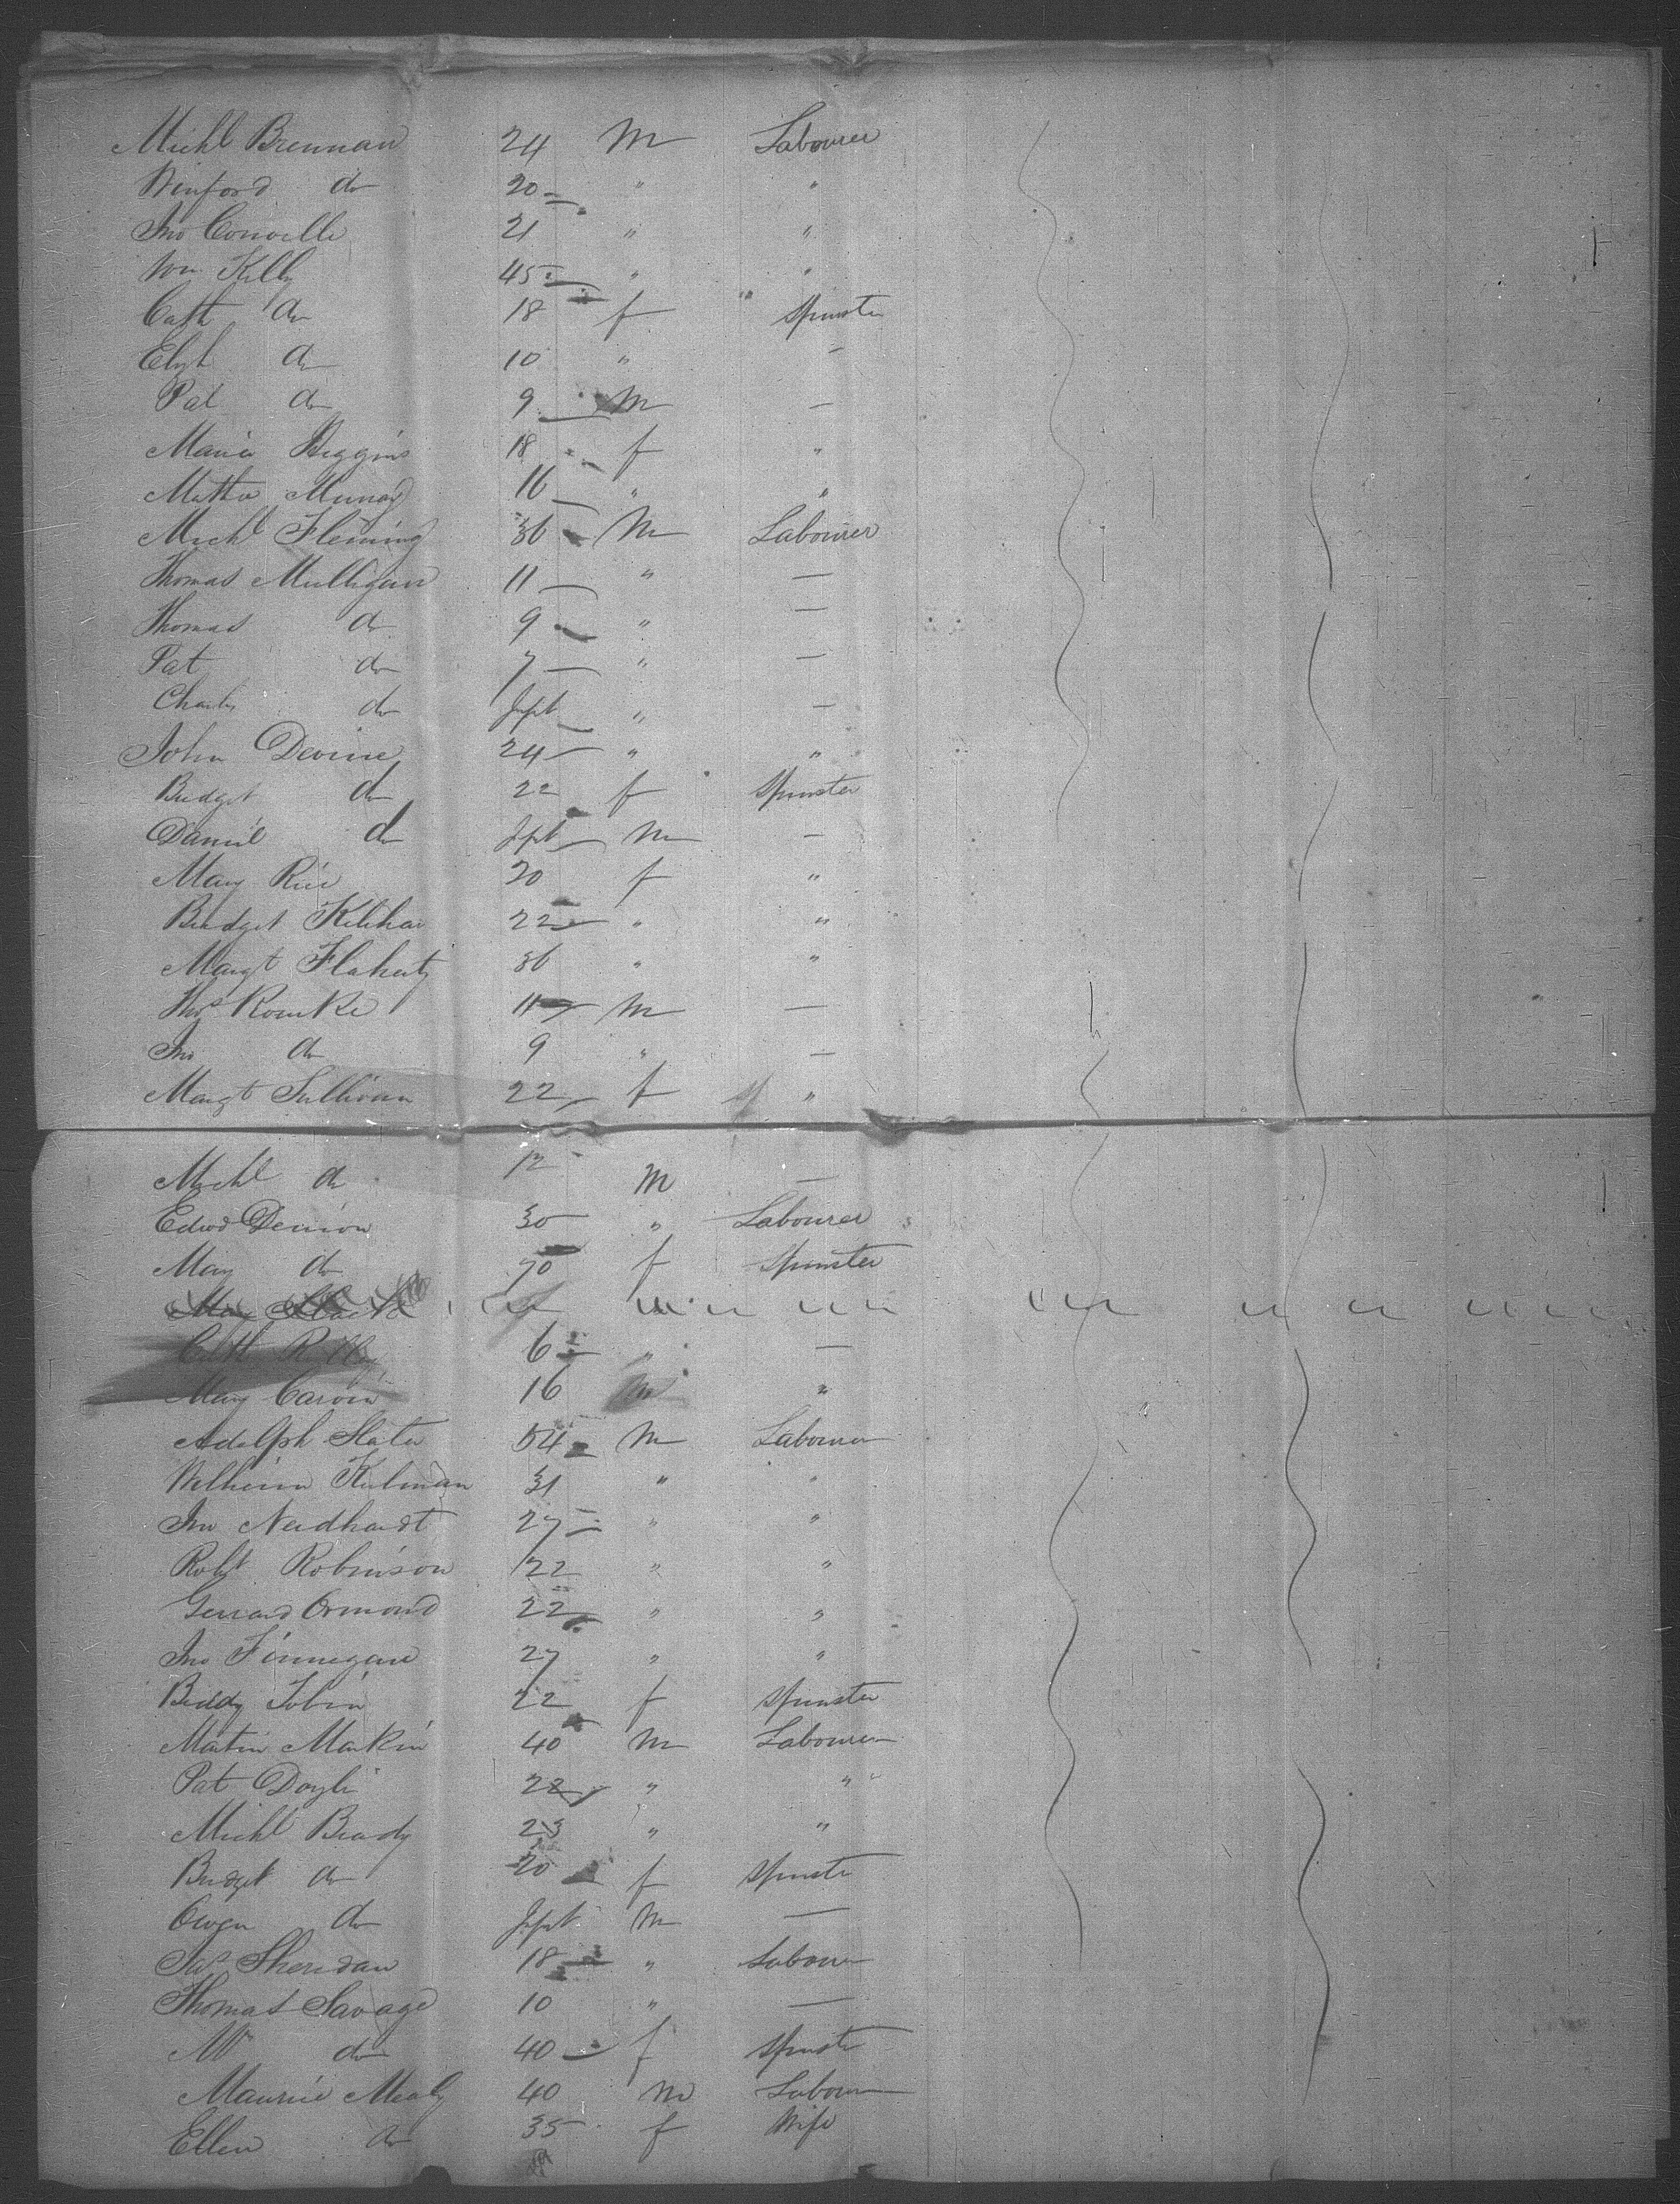 Michl Brennan 24 M Labourer
Winford do 20 " "
Jno Conville 21 " "
Wm Kelly 45 " "
Cath do 18 f " Spinster
Elizh do 10 " -
Pat do 9 M -
Maria Higgins 18 f "
16 " "
Michl Fleming 36 M Labourer
Thomas Mulligan 11 " -
Thomas do 9 " -
Pat do 7 " -
Charles do Inft " -
John Devine 24 " "
Bridget do 22 f Spinster
Daniel do Inft M -
Mary Rice 20 f "
Bridget 22 " "
Margt Flaherty 36 " "
Thos Rourke 11 M -
Jno do 9 " -
Margt Sullivan 22 f "
Michl do 12 M -
Edwd 30 " Labourer
Mary do f Spinster
Mary
Cath Reilly 6 " -
Mary 16 "
Adolph Slater 54 M Labourer
31 " "
Jno Neidhardt 27 " "
Robt Robinson 22 " "
Gerrard Ormond 22 " "
Jno Finnegan 27 " "
Biddy Tobin 22 f Spinster
Martin Markin 40 M Labourer
Pat Doyle 22 " "
Michl Brady 23 " "
Bridget do 20 f Spinster
Owen do Inft M —
Jas Sheridan 18 " Labourer
Thomas Savage 10 " —
do 40 f Spinster
Maurice Mealy 40 M Labourer
Ellen do 35 f Wife